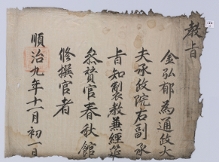 教旨
金弘郁為通政大
夫承政院右副承
旨知製教兼經筵
叅贊官春秋館
修撰官者
順治九年十一月初一日